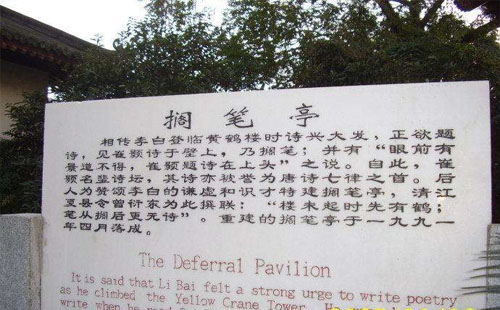 搁笔亭
相传李白登临黄鹤楼时诗兴大发，正欲题
诗，见崔颢诗于壁上，乃搁笔；并有“眼前有
景道不得，崔颢题诗在上头”之说。自此，崔
颢名蜚诗坛，其诗亦被誉为唐诗七律之首。后
人为赞颂李白的谦虚和识才特建搁笔亭，清江
夏县令曾衍东为此撰联：“楼未起时先有鹤；
笔从搁后更无诗”。重建的搁笔亭于一九九一
年四月落成。
The Deferral Pavilion
It is said that Li Bai felt a strong urge to write poetry
as he climbed the Yellow Crane Tower.
write when he